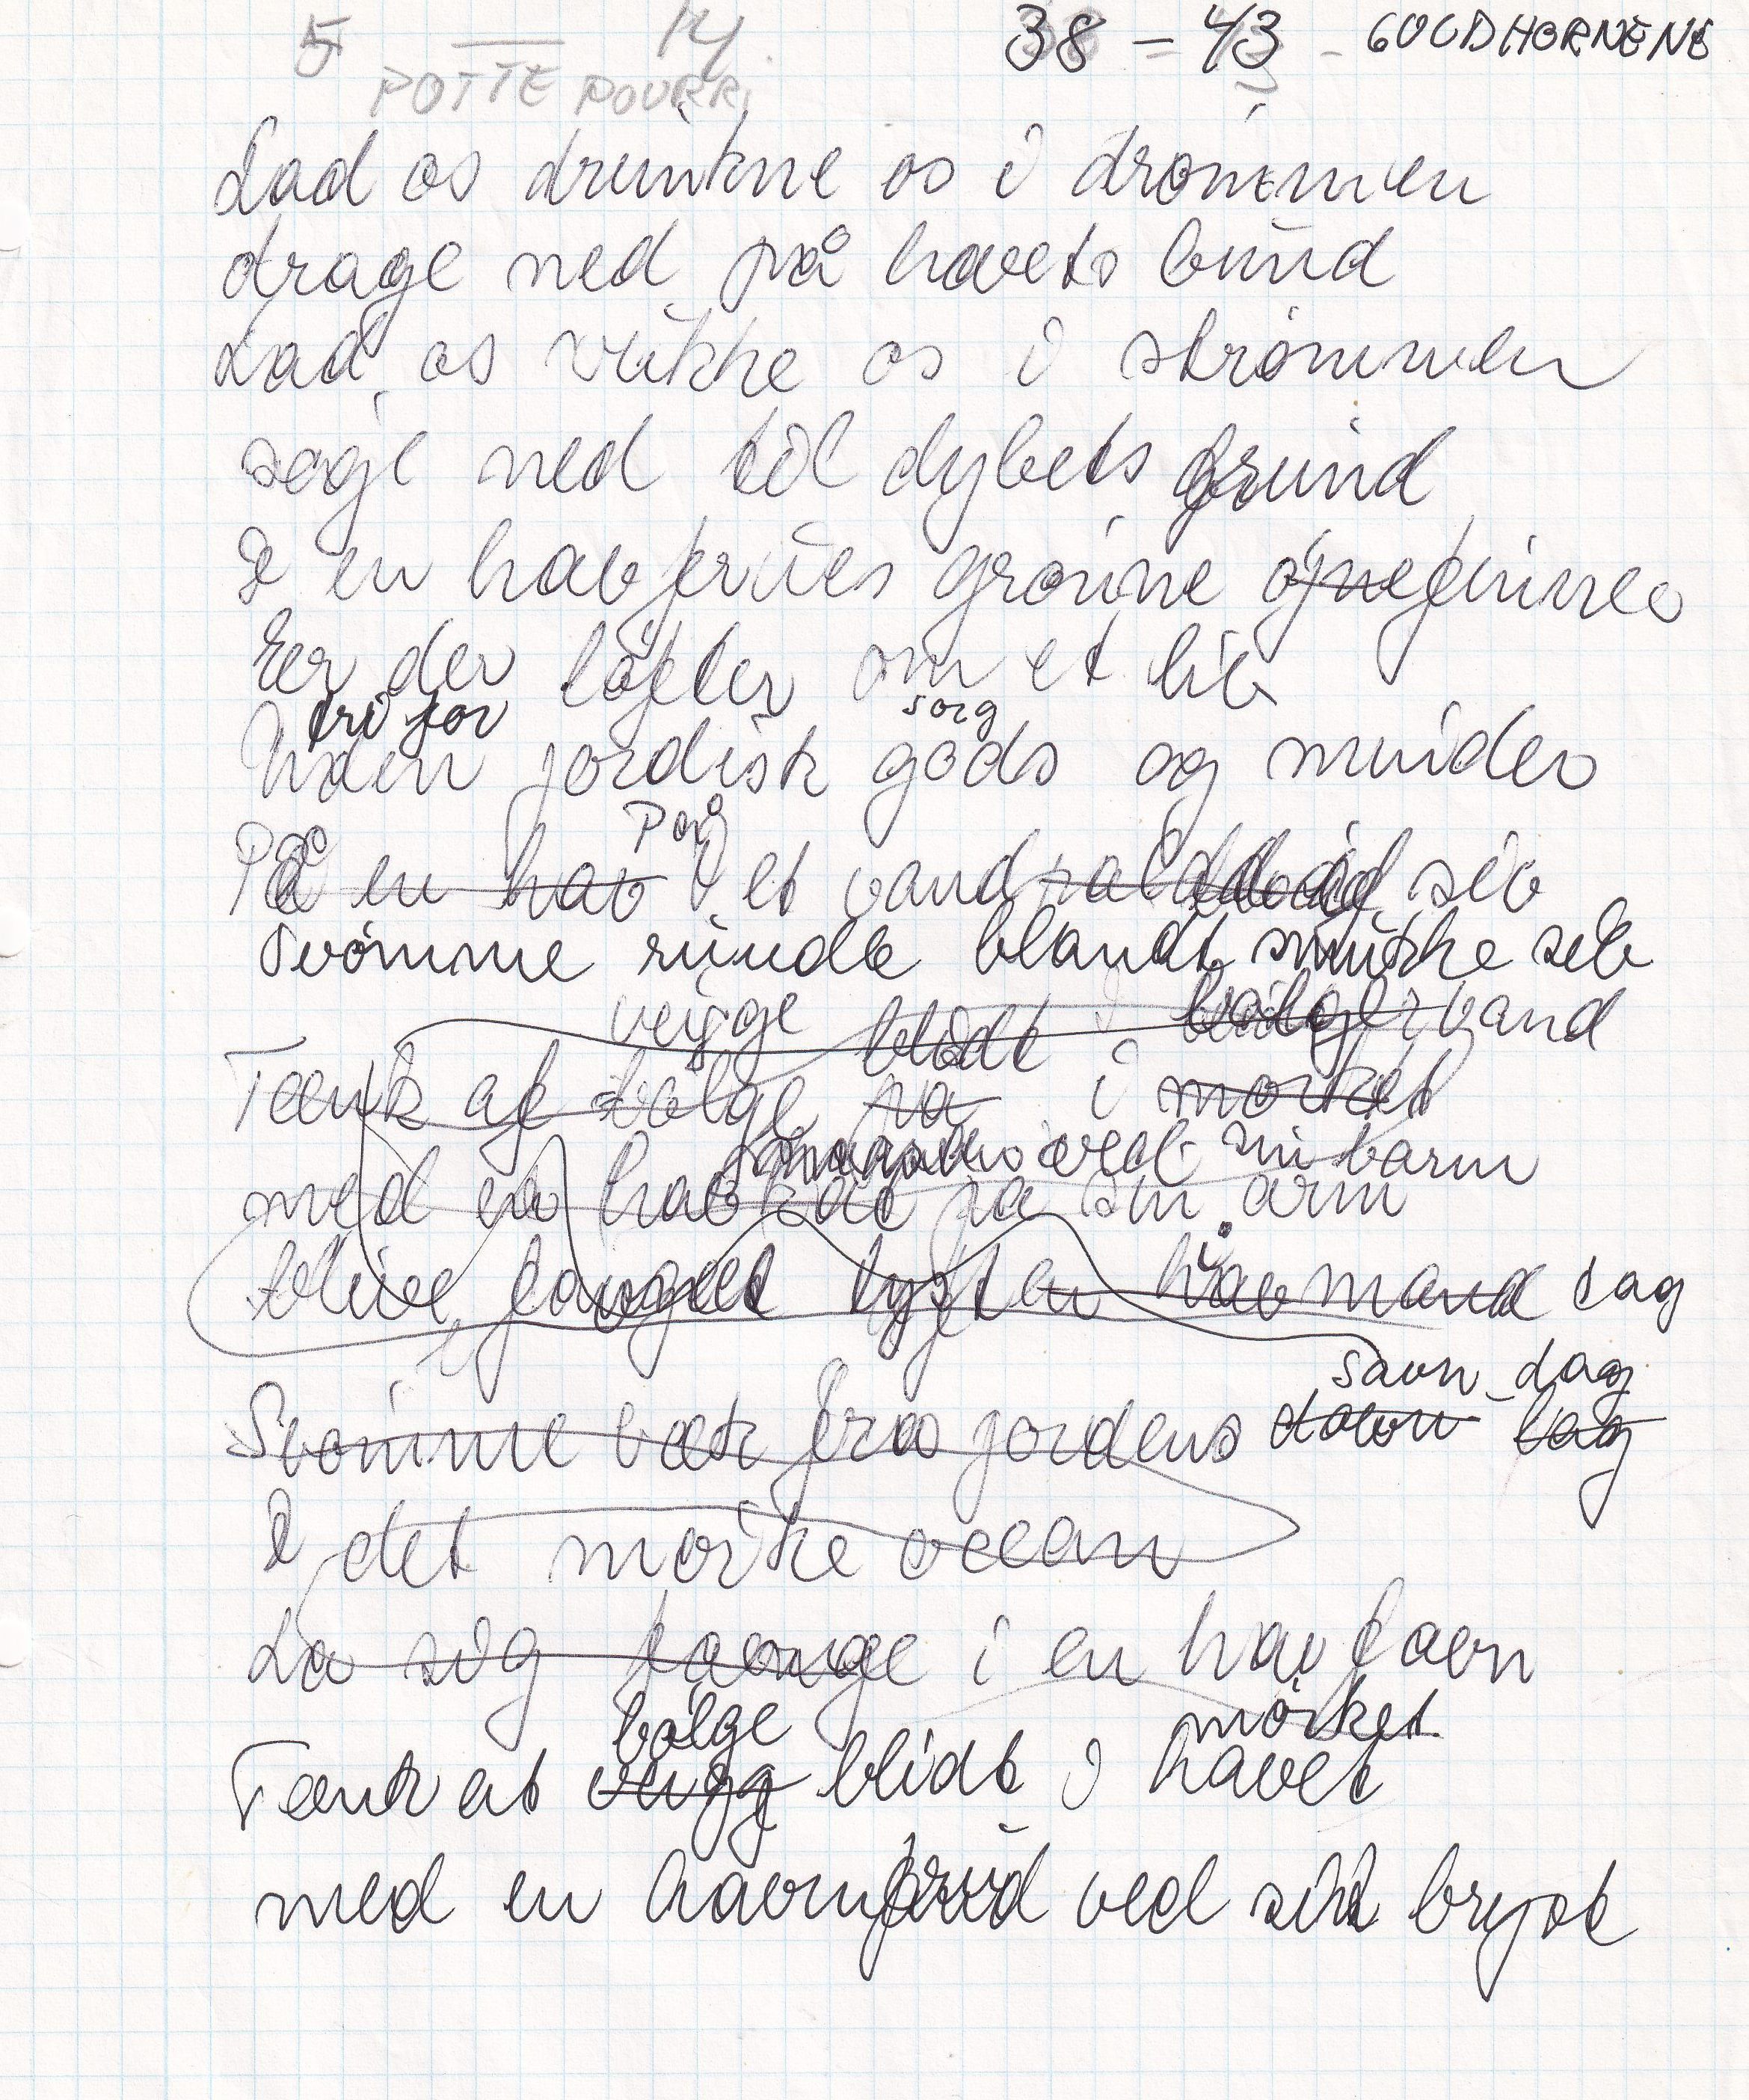 5 — 14. 38 – 43 – GULDHORNENE
POTTE POURRI
Lad os drunkne os i drømmen
drage ned på havets bund
Lad os vukke os i strømmen
søge ned til dybets grund
I en havfrues grønne øjne
Er der løfter om et liv
fri for sorg
Uden jordisk gods og
På
På en hav i et vand siv
Svømme rundt blandt smukke
vugge blidt i bølger vand
Tænk at bølge på i mørket
ved sin barm
med en på sin arm
blive fanget havmand tag
savn dag
Svømme væk fra jordens
I det mørke ocean
La sig fange i en havfavn
bølge mørket
Tænk at vugge blidt i havet
med en ved sit bryst